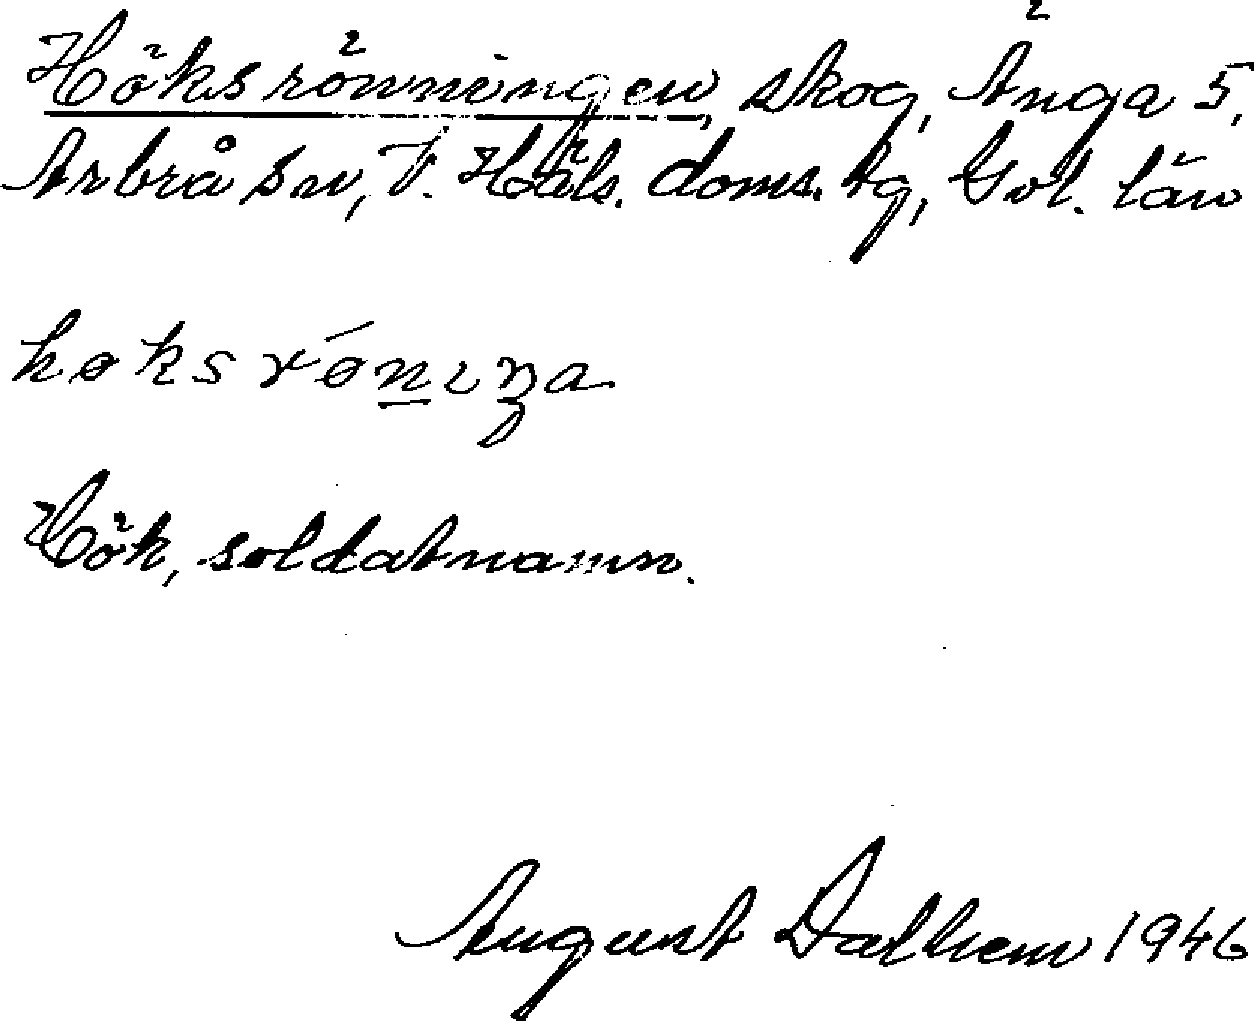 Höksrönningen, skog, Änga 5,
Arbrå sn, V. Häls. doms. tg, Gvl. län
høks rǿnɩŋa
Hök, soldatnamn.
August Dalhem 1946